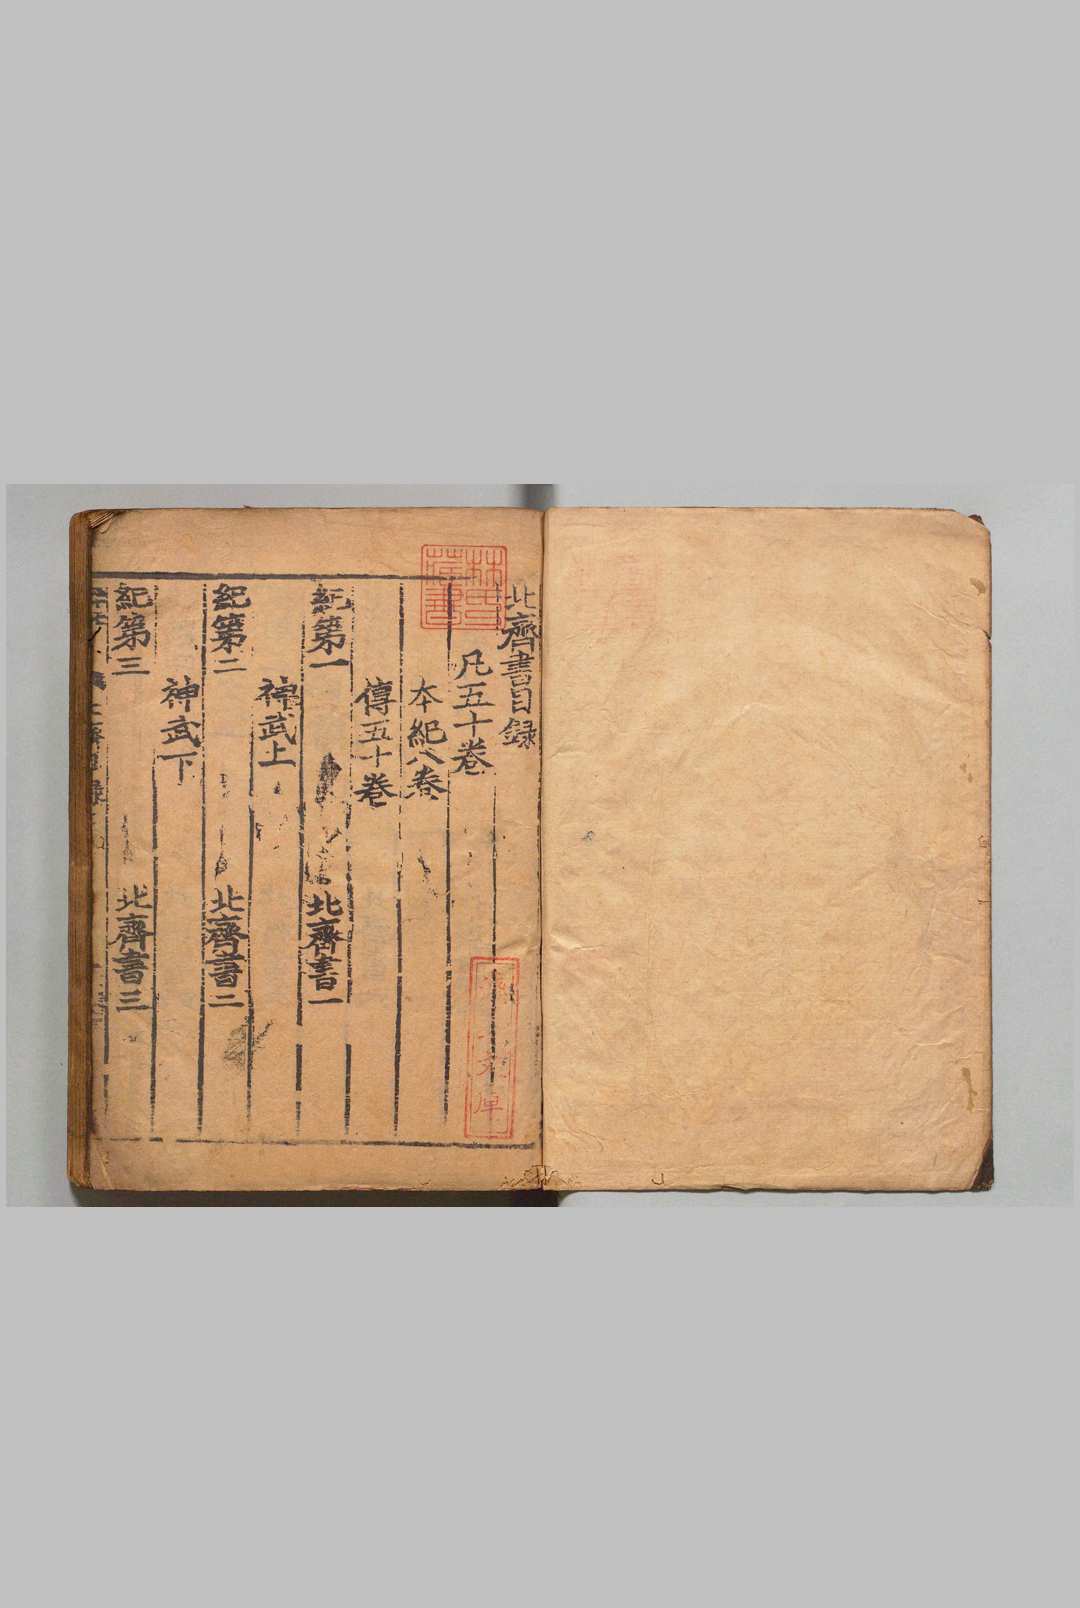 北齊書目錄
凡五十卷
本紀八卷
傳五十卷
紀第一 北齊書一
神武上
紀第二 北齊書二
神武下
紀第三 北齊書三